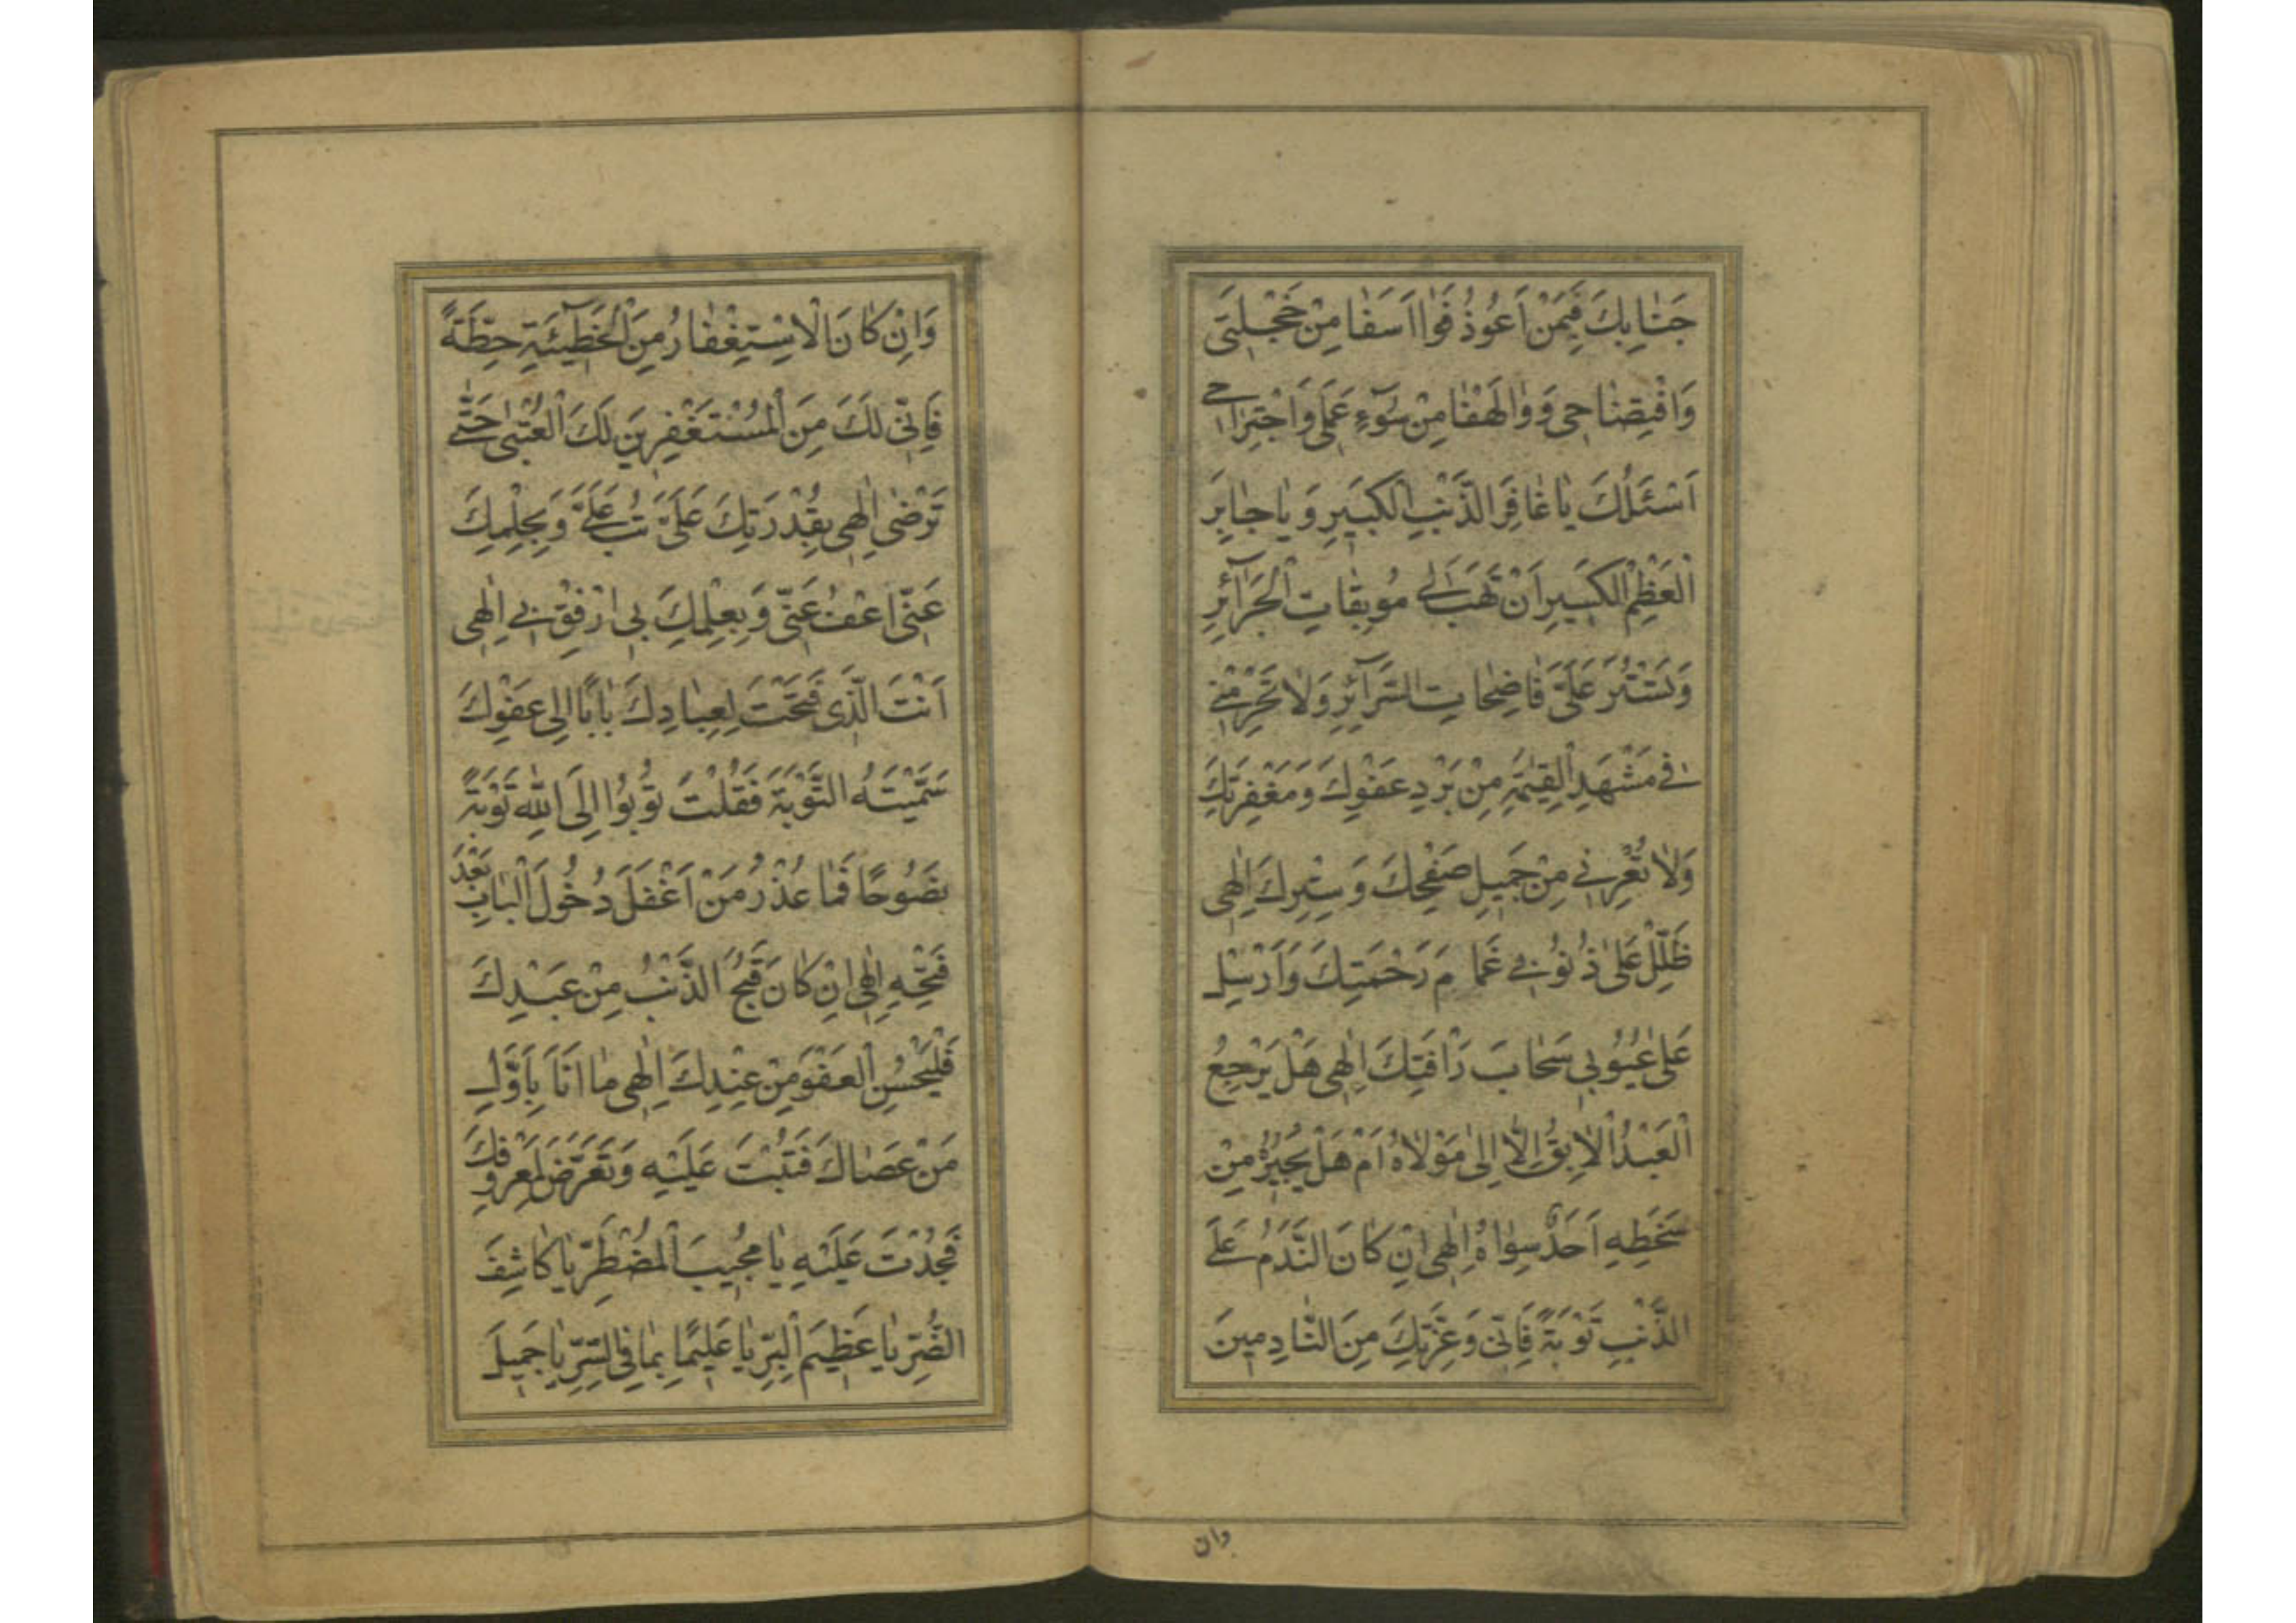 جَنٰابِكَ فَبِمَنْ اَعُوذُ فَوٰا اَسَفٰا مِنْ خَجْلَتِى
وَافْتِضٰاحِى وَ وٰالَهْفٰا مِنْ سُوٓءِ عَمَلِى وَاجْتِرٰاحِى
اَسْئَلُكَ يٰا غٰافِرَ الذَّنْبِ الْكَبِيرِ وَ يٰا جٰابِرَ
الْعَظْمِ الْكَسِيرِ اَنْ تَهَبَ لِى مُوبِقٰاتِ الْجَرٰآئِرِ
وَتَسْتُرَ عَلَىَّ فٰاضِحٰاتِ السَّرٰآئِرِ وَلٰا تُخْرِمْنِى
فِى مَشْهَدِ الْقِيٰمَةِ مِنْ بَرْدِ عَفْوِكَ وَ مَغْفِرَتِكَ
وَلٰا تُعْرِنِى مِنْ جَمِيلِ صَفْحِكَ وَ سِتْرِكَ اِلٰهِى
ظَلِّلْ عَلىٰ ذُنُوبِى غَمٰامَ رَحْمَتِكَ وَاَرْسِلْ
عَلىٰ عُيُوبِى سَحٰابَ رَاْفَتِكَ اِلٰهِى هَلْ يَرْجِعُ
الْعَبْدُ الْاٰبِقُ اِلّٰا اِلىٰ مَوْلٰاهُ اَمْ هَلْ يُجِيرُهُ مِنْ
سَخَطِهِ اَحَدٌ سِوٰاهُ اِلٰهِى اِنْ كٰانَ النَّدَمُ عَلَى
الذَّنْبِ تَوْبَةً فَاِنِّى وَعِزَّتِكَ مِنَ النّٰادِمِينَ
وان
وَاِنْ كٰانَ الْاِسْتِغْفٰارُ مِنَ الْخَطِٓيئَةِ حِطَّةً
فَاِنِّى لَكَ مِنَ الْمُسْتَغْفِرِينَ لَكَ الْعُتْبىٰ حَتّٰى
تَرْضىٰ اِلٰهِى بِقُدْرَتِكَ عَلَىَّ تُبْ عَلَىَّ وَ بِحِلْمِكَ
عَنِّى اعْفُ عَنِّى وَ بِعِلْمِكَ بِى ارْفِقْ بِى اِلٰهِى
اَنْتَ الَّذِى فَتَحْتَ لِعِبٰادِكَ بٰابًا اِلىٰ عَفْوِكَ
سَمَّيْتَهُ التَّوْبَةَ فَقُلْتَ تُوبُوا اِلَى اللّٰهِ تَوْبَةً
نَصُوحًا فَمٰا عُذْرُ مَنْ اَغْفَلَ دُخُولَ الْبٰابِ بَعْدَ
فَتْحِهِ اِلٰهِى اِنْ كٰانَ قَبُحَ الذَّنْبُ مِنْ عَبْدِكَ
فَلْيَحْسُنِ الْعَفْوُ مِنْ عِنْدِكَ اِلٰهِى مٰا اَنَا بِاَوَّلِ
مَنْ عَصٰاكَ فَتُبْتَ عَلَيْهِ وَ تَعَرَّضَ لِمَعْرُوفِكَ
فَجُدْتَ عَلَيْهِ يٰا مُجِيبَ الْمُضْطَرِّ يٰا كٰاشِفَ
الضُّرِّ يٰا عَظِيمَ الْبِرِّ يٰا عَلِيمًا بِمٰا فِى السِّرِّ يٰا جَمِيلَ